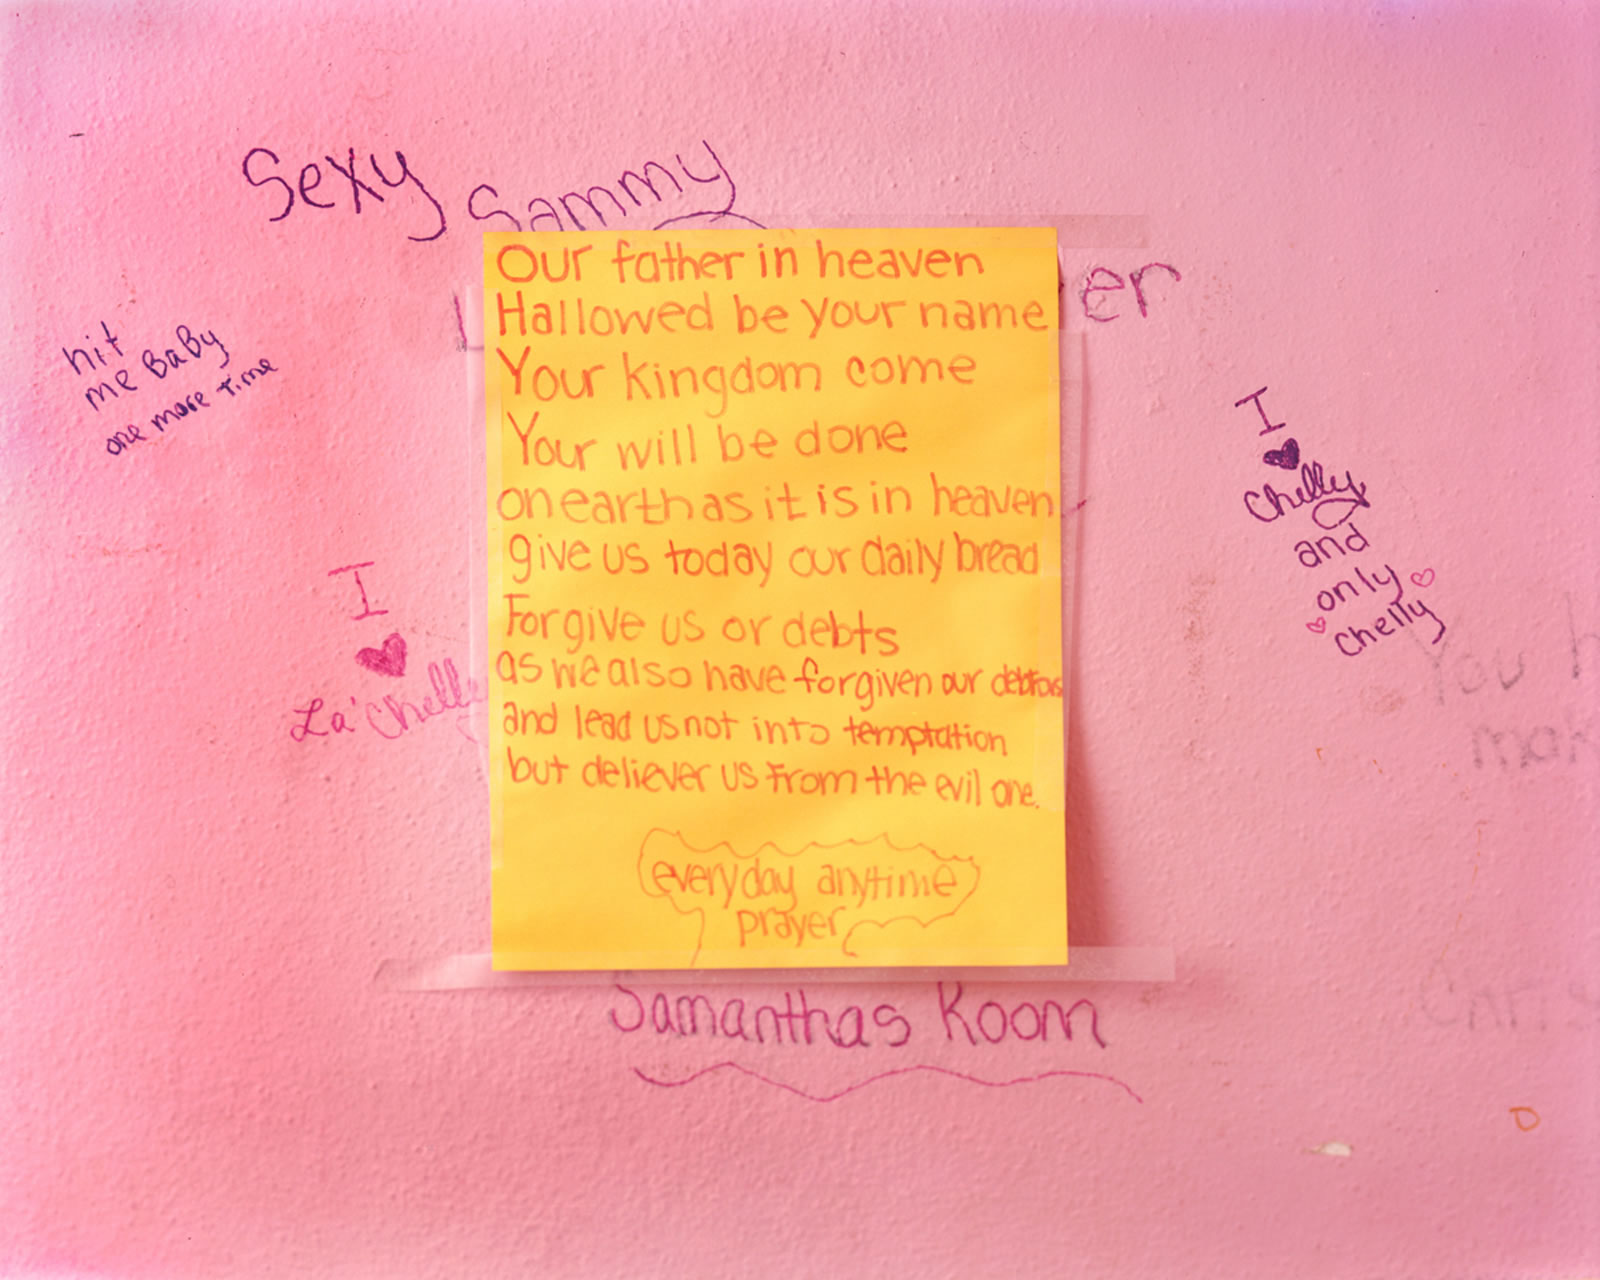 Sexy Sammy
er
hit
me BaBy
one more time
I
La'Chelly
I
Chelly
and
only
chelly
You
Our father in heaven
Hallowed be your name
Your kingdom come
Your will be done
on earth as it is in heaven
give us today our daily bread
Forgive us or debts
as we also have forgiven our debtors
and lead us not into temptation
but deliever us from the evil one.
everyday anytime
prayer
Samanthas Room